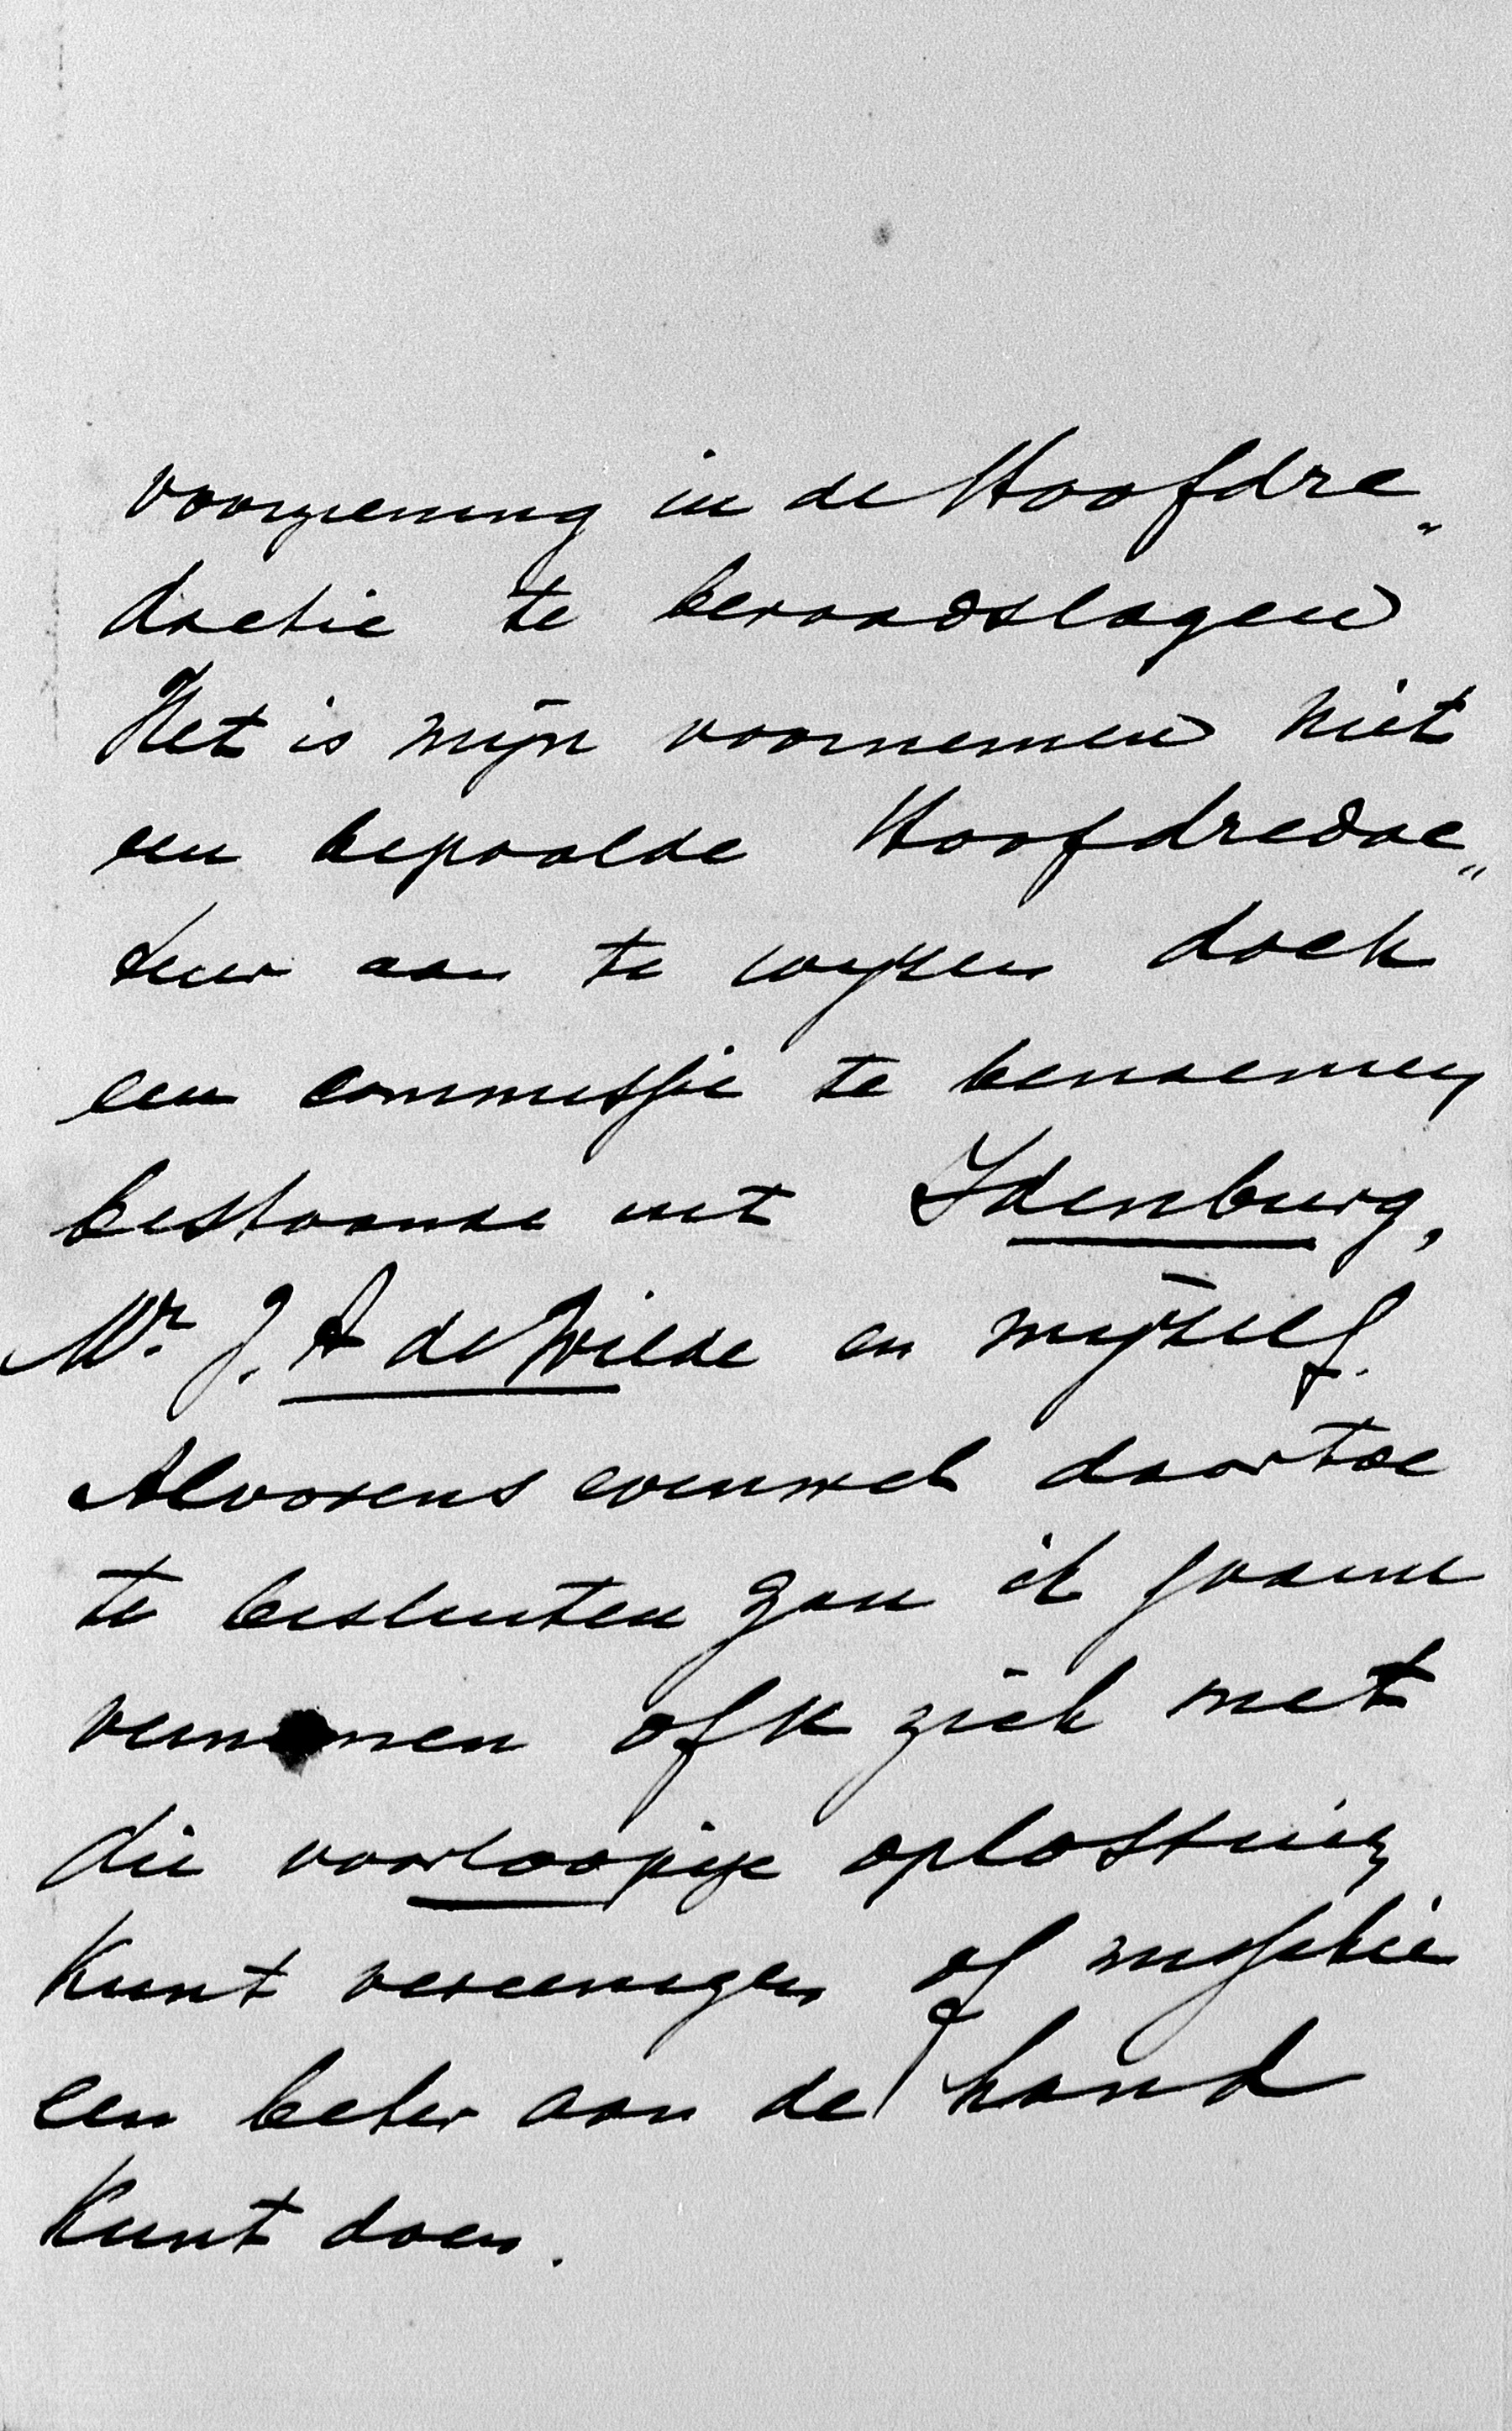 voorziening in de Hoofdre„
dactie te beraadslagen
Het is mijn voornemen niet
een bepaalde Hoofdredac„
teur aan te wijzen doch
een commissie te benoemen
bestaande uit Idenburg,
Mr. J. A de Wilde en mijzelf.
Alvorens evenwel daartoe
te besluiten zou ik gaarne
vernemen of u zich met
die voorloopige oplossing
kunt vereenigen of misschien
een beter aan de hand
kunt doen.